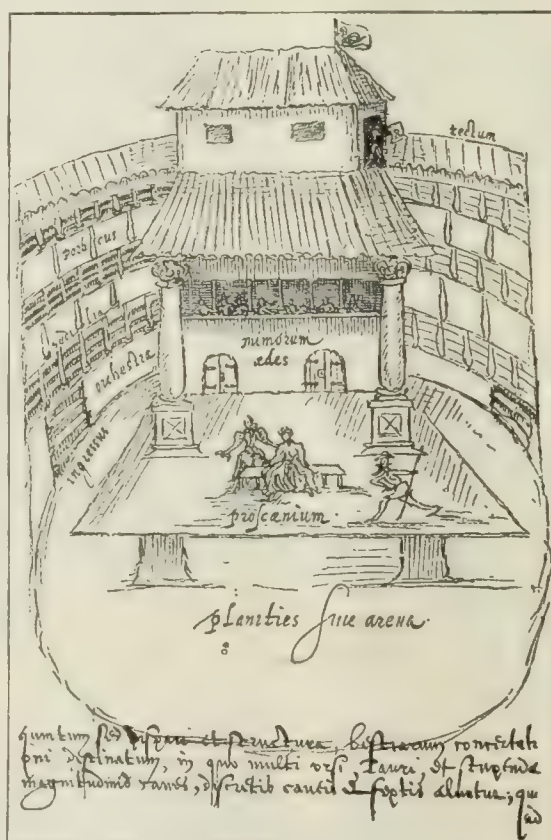 tectum
porticus
sedilia
orchestra
mimorum
ædes
ingressus
proscænium.
planities siue arena.
quintum sed dispari et structura, bestiarum concertati
oni destinatum, in quo multi vrsi, Tauri, et stupendæ
magnitudinis canes, discretis caueis & septis aluntur; qui
ad